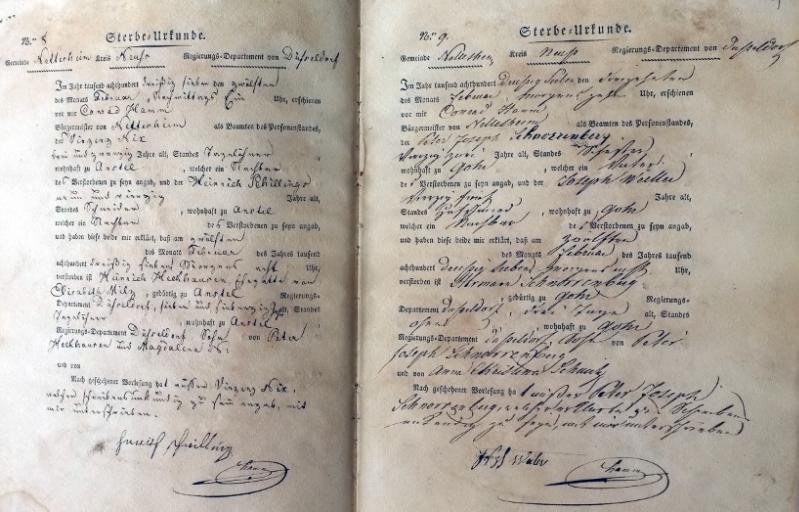 No. 8 Sterbe-Urkunde.
Gemeinde Nettesheim Kreis Neuss Regierungs-Departement von Düsseldorf
Im Jahr tausend achthundert dreißig sieben den zwölften
des Monats Februar, Nachmittags Ein Uhr, erschienen
vor mir Conrad Hamm
Bürgermeister von Nettesheim als Beamten des Personenstandes,
der Vinzenz Nix
drei und zwanzig Jahre alt, Standes Tagelöhner
wohnhaft zu Anstel, welcher ein Nachbar
des Verstorbenen zu seyn angab, und der Heinrich Schillings
neun und vierzig Jahre alt,
Standes Schneider, wohnhaft zu Anstel
welcher ein Nachbar des Verstorbenen zu seyn angab,
und haben diese beide mir erklärt, daß am zwölften
des Monats Februar des Jahres tausend
achthundert dreißig sieben Morgens acht Uhr,
verstorben ist Heinrich Hechhausen Ehegatte von
Elisabeth, gebürtig zu Anstel Regierungs-
Departement Düsseldorf, sieben und siebenzig Jahre alt, Standes
Tagelöhner, wohnhaft zu Anstel
Regierungs-Departement Düsseldorf Sohn von Peter
Hechhausen und Magdalena
und von
Nach geschehener Vorlesung hat außer Vinzenz Nix,
welcher schreibensunkundig zu sein angab, mit
mir unterschrieben.
Hamm
No. 9. Sterbe-Urkunde.
Gemeinde Nettesheim Kreis Neuss Regierungs-Departement von Düsseldorf
Im Jahr tausend achthundert dreißig sieben den vierzehnten
des Monats Februar morgens Uhr, erschienen
vor mir Conrad Hamm
Bürgermeister von Nettesheim als Beamten des Personenstandes,
der Peter Joseph Schnorrenberg
vierzig zwei Jahre alt, Standes
wohnhaft zu Gohr, welcher ein Vater
des Verstorbenen zu seyn angab, und der Joseph
vierzig fünf Jahre alt,
Standes, wohnhaft zu Gohr
welcher ein Nachbar des Verstorbenen zu seyn angab,
und haben diese beide mir erklärt, daß am zwölften
des Monats Februar des Jahres tausend
achthundert dreißig sieben morgens Uhr,
verstorben ist Hermann Schnorrenberg
, gebürtig zu Gohr Regierungs-
Departement Düsseldorf, drei Tage alt, Standes
ohne, wohnhaft zu Gohr
Regierungs-Departement Düsseldorf Sohn von Peter
Joseph Schnorrenberg
und von Anna Christina Schmitz
Nach geschehener Vorlesung hat außer Peter Joseph
Schnorrenberg, welcher erklärte des Schreibens
unkundig zu seyn, mit mir unterschrieben
Hamm